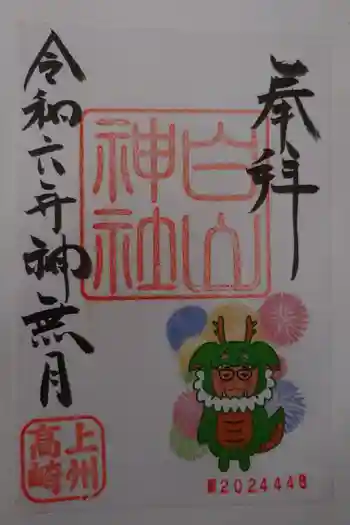 奉拝
白山神社
令和六年神無月
上州高崎
2024448